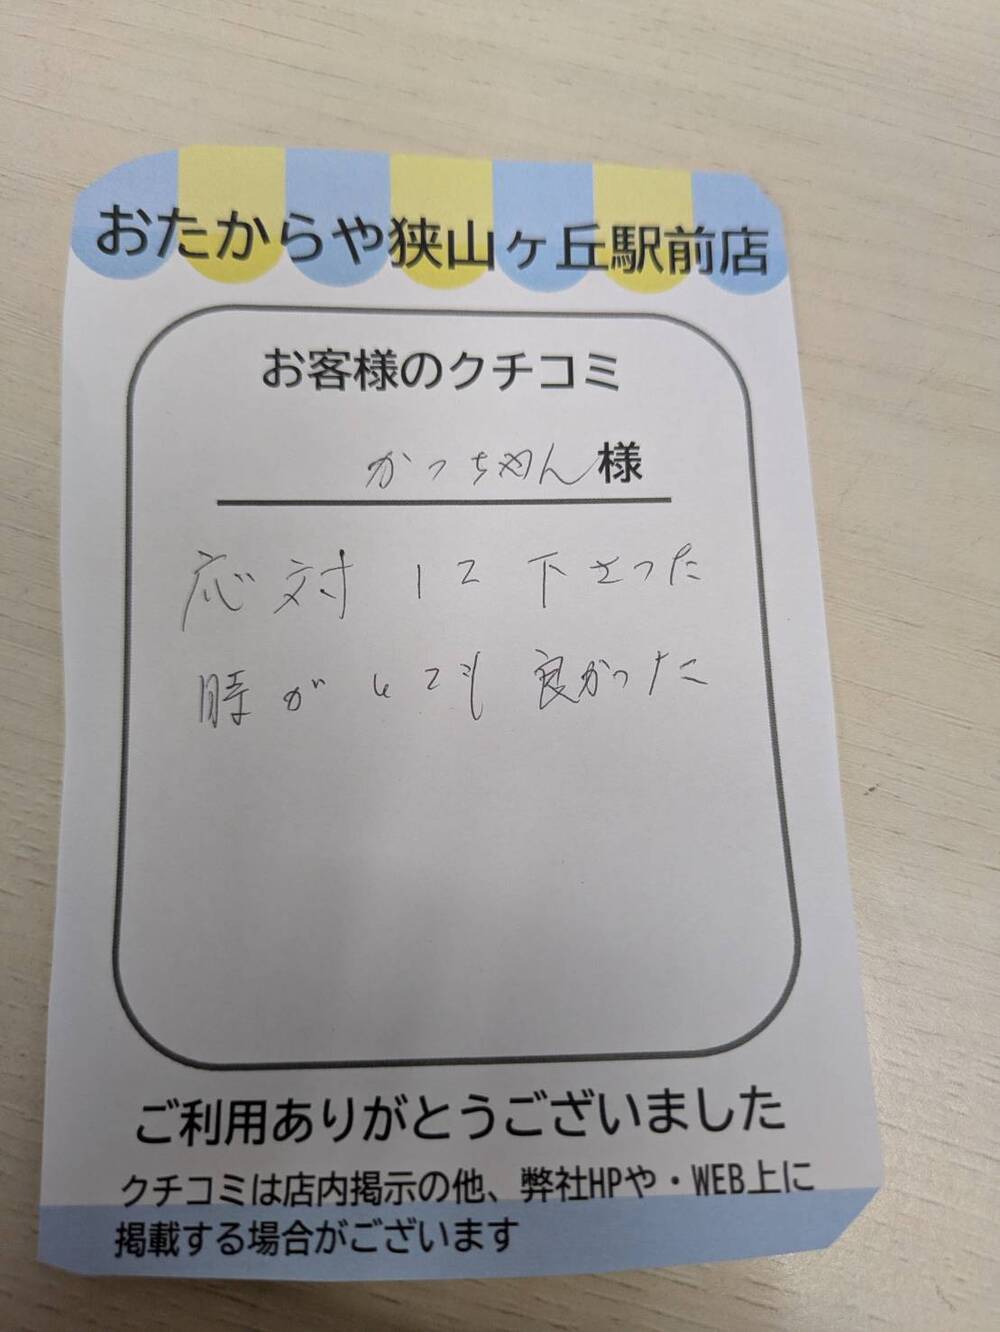 おたからや狭山ヶ丘駅前店
お客様のクチコミ
かっちゃん様
応対して下さった
時がとても良かった
ご利用ありがとうございました
クチコミは店内掲示の他、弊社HPや・WEB上に
掲載する場合がございます